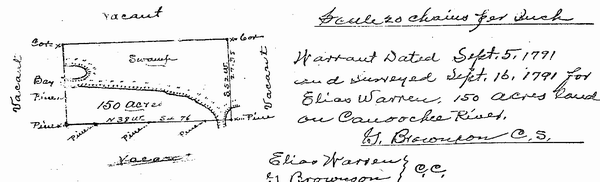 Vacant
Cor
Cor
Swamp
Vacant
Bay
Pine
150 Acres
Vacant
Pine
N 38 W.
Pine
Pine
Pine
Vacant
Scale 20 chains per Inch
Warrant Dated Sept. 5, 1791
and surveyed Sept. 16, 1791 for
Elias Warren, 150 acres land
on Canoochee River.
G. Brownson C. S.
Elias Warren
G. Brownson } C.C.